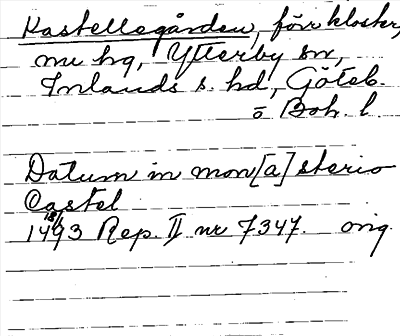 Kastellegården, förr kloster,
nu hg, Ytterby sn,
Inlands s. hd, Göteb.
o Boh. l
Datum in mon[a]sterio
Castel
1493 18/1 Rep. II nr 7347. orig.